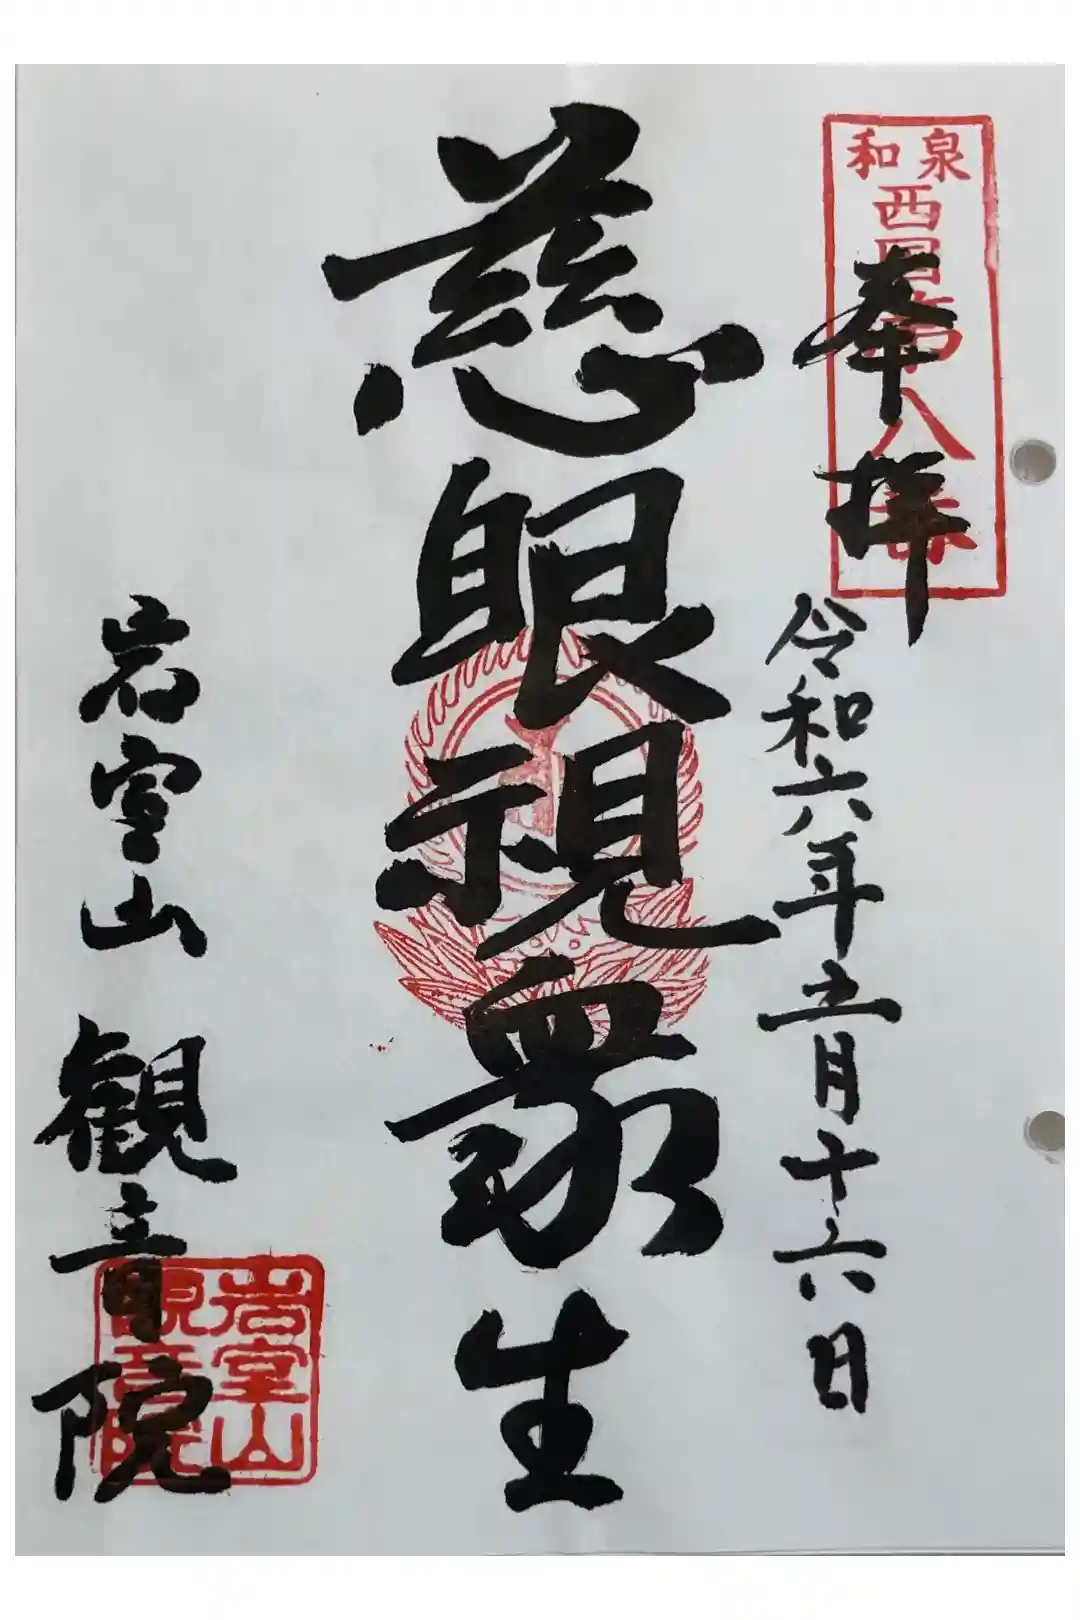 和泉
西国第八番
奉拝
令和六年五月十六日
慈眼視衆生
岩室山 観音院
岩室山
観音院